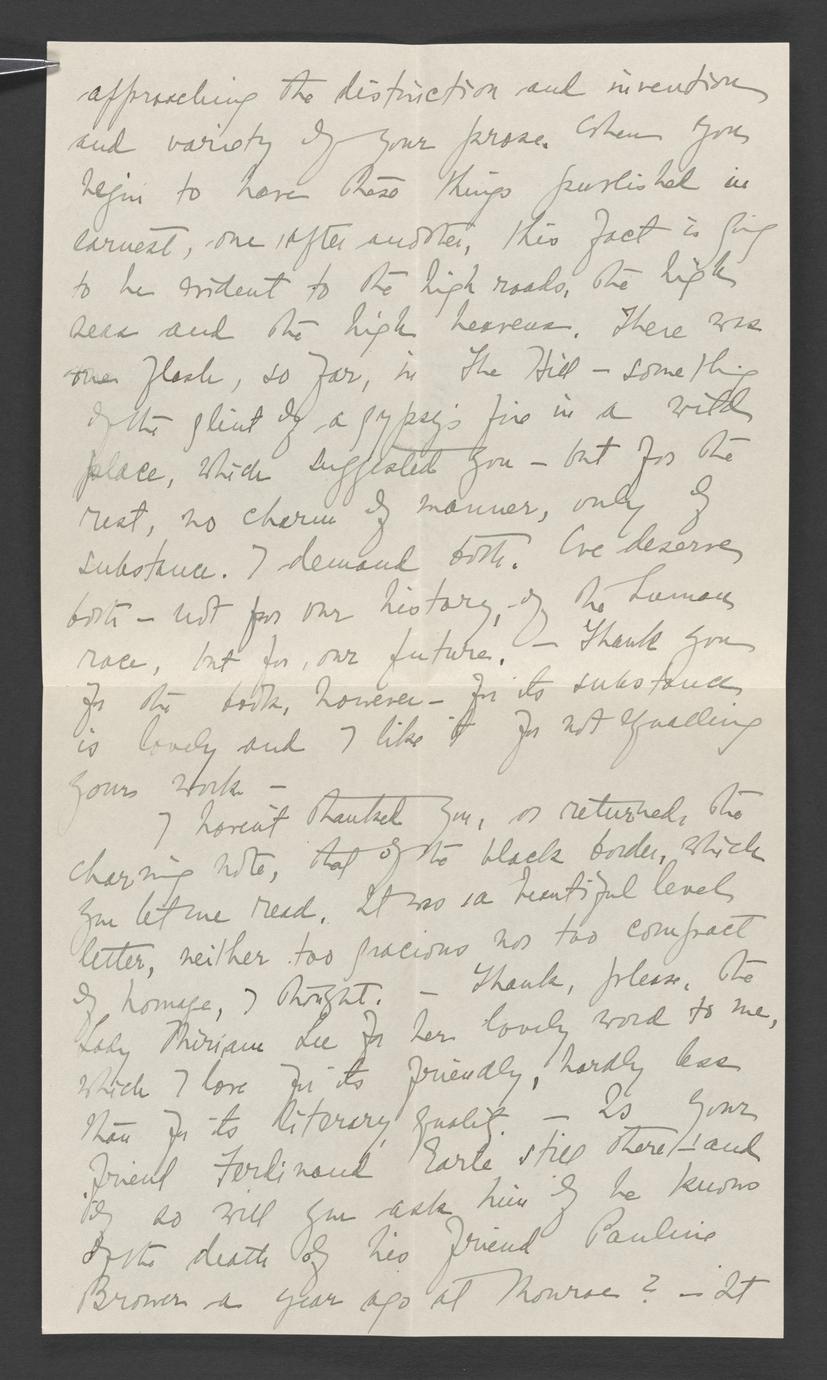 approaching the distinction and invention
and variety of your prose. When you
begin to have these things published in
earnest, one after another, this fact is going
to be evident to the high roads, the high
seas and the high heavens. There was
one flash, so far, in The Hill – something
of the glint of a gypsy's fire in a wild
place, which suggested you – but for the
rest, no charm of manner, only of
substance. I demand both. We deserve
both – not for our history, of the human
race, but for our future. – Thank you
for the book, however – for its substance
is lovely and I like it for not equalling
yours work –
I haven't thanked you, or returned, the
charming note, that of the black border, which
you let me read. It was a beautiful level
letter, neither too gracious nor too compact
of homage, I thought. – Thank, please, the
Lady Miriam Lee for her lovely word to me,
which I love for its friendly, hardly less
than for its literary quality – Is your
friend Ferdinand Earle still there – and
if so will you ask him if he knows
of the death of his friend Pauline
Brower a year ago at Monroe? – It